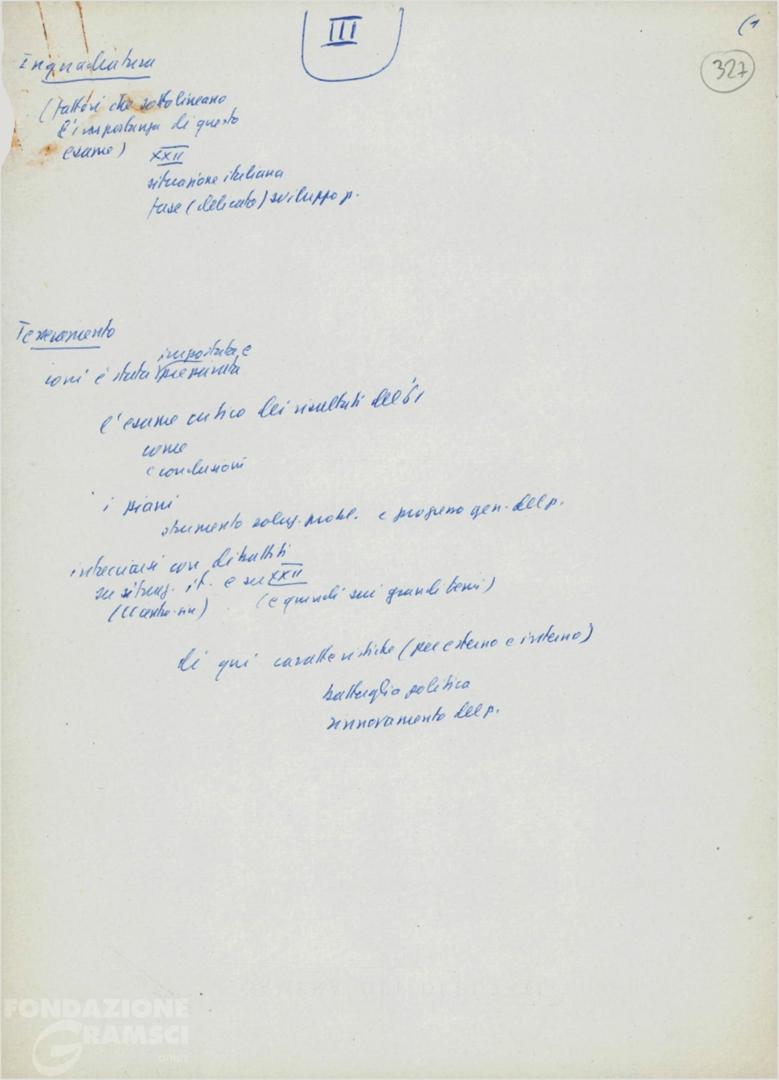 III
(1
327
Inquadratura
(fattori che sottolineano
l'importanza di questo
esame)
XXII
situazione italiana
fase (delicata) sviluppo p.
Tesseramento
impostata e
com'è stata preparata
l'esame critico dei risultati del '61
come
e conclusioni
i piani
strumento soluz. probl. e progresso gen. del p.
intrecciarsi con dibattiti
su situaz. it. e su XXII
(e quindi sui grandi temi)
di qui caratteristiche (per esterno e interno)
battaglia politica
rinnovamento del p.
FONDAZIONE
GRAMSCI